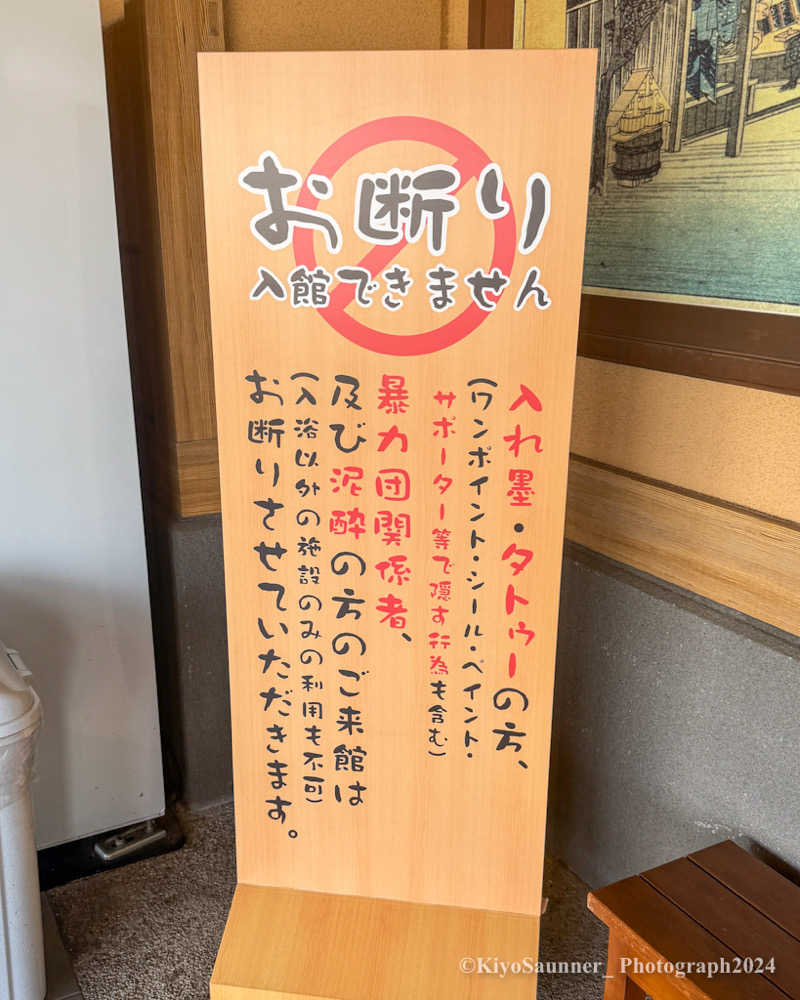 お断り
入館できません
入れ墨・タトゥーの方、
（ワンポイント・シール・ペイント・
サポーター等で隠す行為も含む）
暴力団関係者、
及び泥酔の方のご来館は
（入浴以外の施設のみの利用も不可）
お断りさせていただきます。
©KiyoSaunner_ Photograph2024